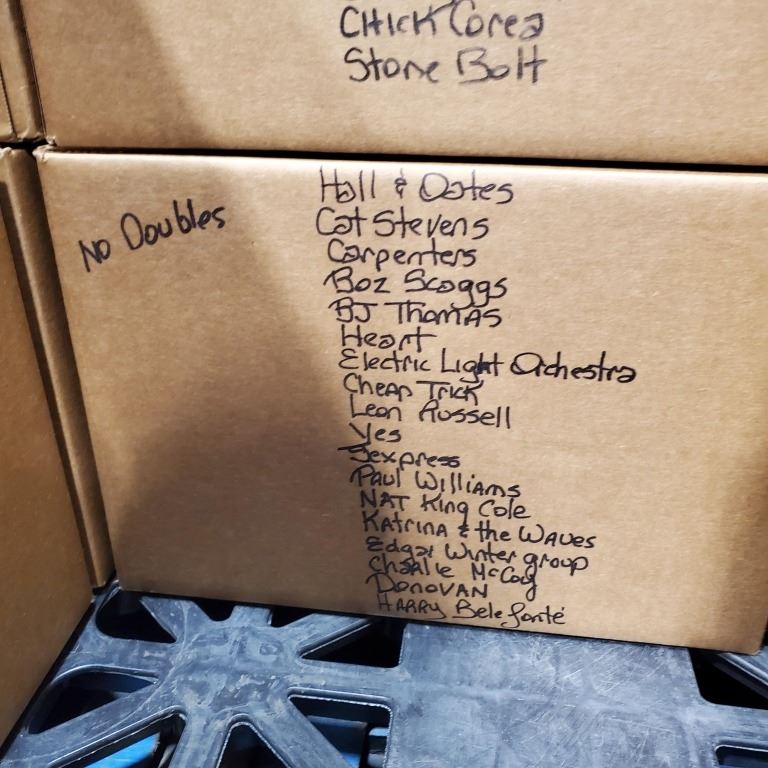 CHICK Corea
Stone Bolt
NO Doubles
Hall & Oates
Cat Stevens
Carpenters
Boz Scaggs
BJ THOMAS
Heart
Electric Light Orchestra
CHEAP TRICK
Leon Russell
Yes
Sexpress
Paul WILLIAMS
NAT King Cole
KATRINA & the WAVES
Edgar Winter group
Charlie McCoy
DONOVAN
HARRY Belefonté